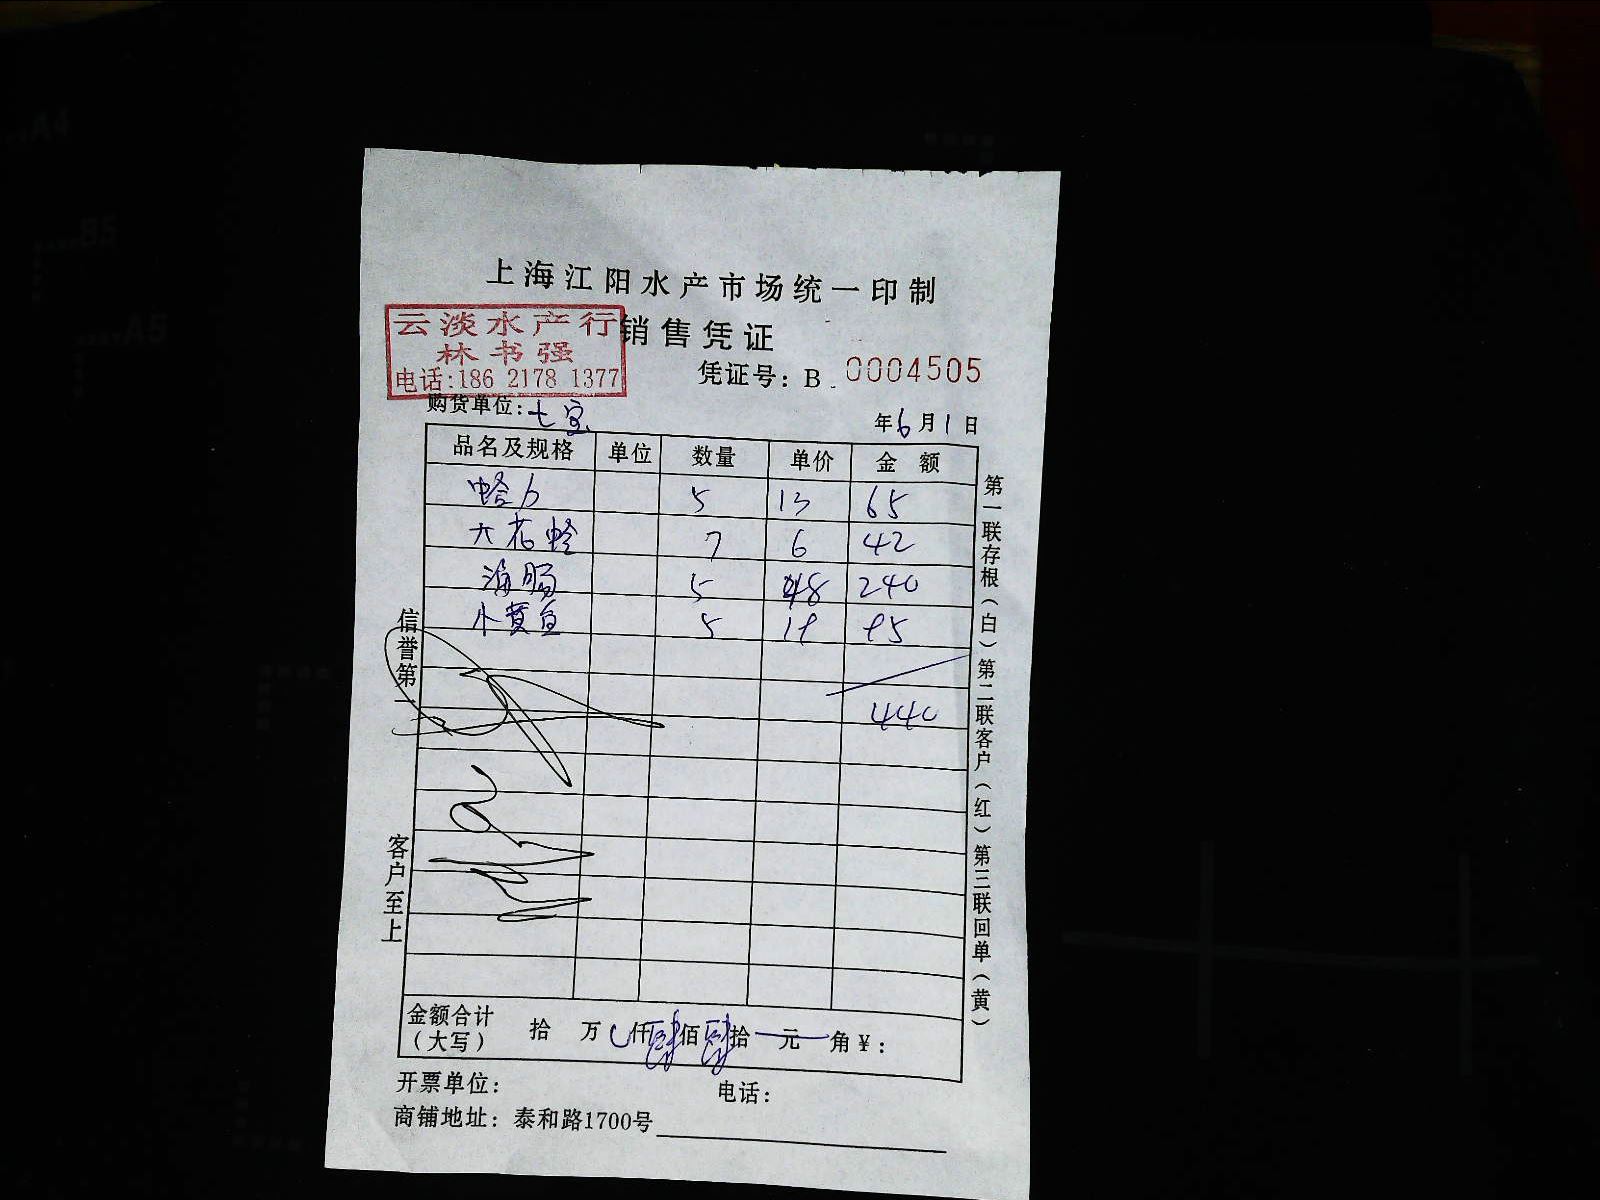 上海江阳水产市场统一印制
云淡水产行
林书强
电话:186 2178 1377
销售凭证
凭证号：B 0004505
购货单位：七宝
年6月1日
品名及规格 单位 数量 单价 金额
5 13 65
六花蛤 7 6 42
海肠 5 48 240
小黄鱼 5 19 95
440
金额合计（大写） 拾 万 仟肆佰肆拾 元 角￥：
开票单位： 电话：
商铺地址：泰和路1700号
信誉第一
客户至上
第一联存根（白）第二联客户（红）第三联回单（黄）